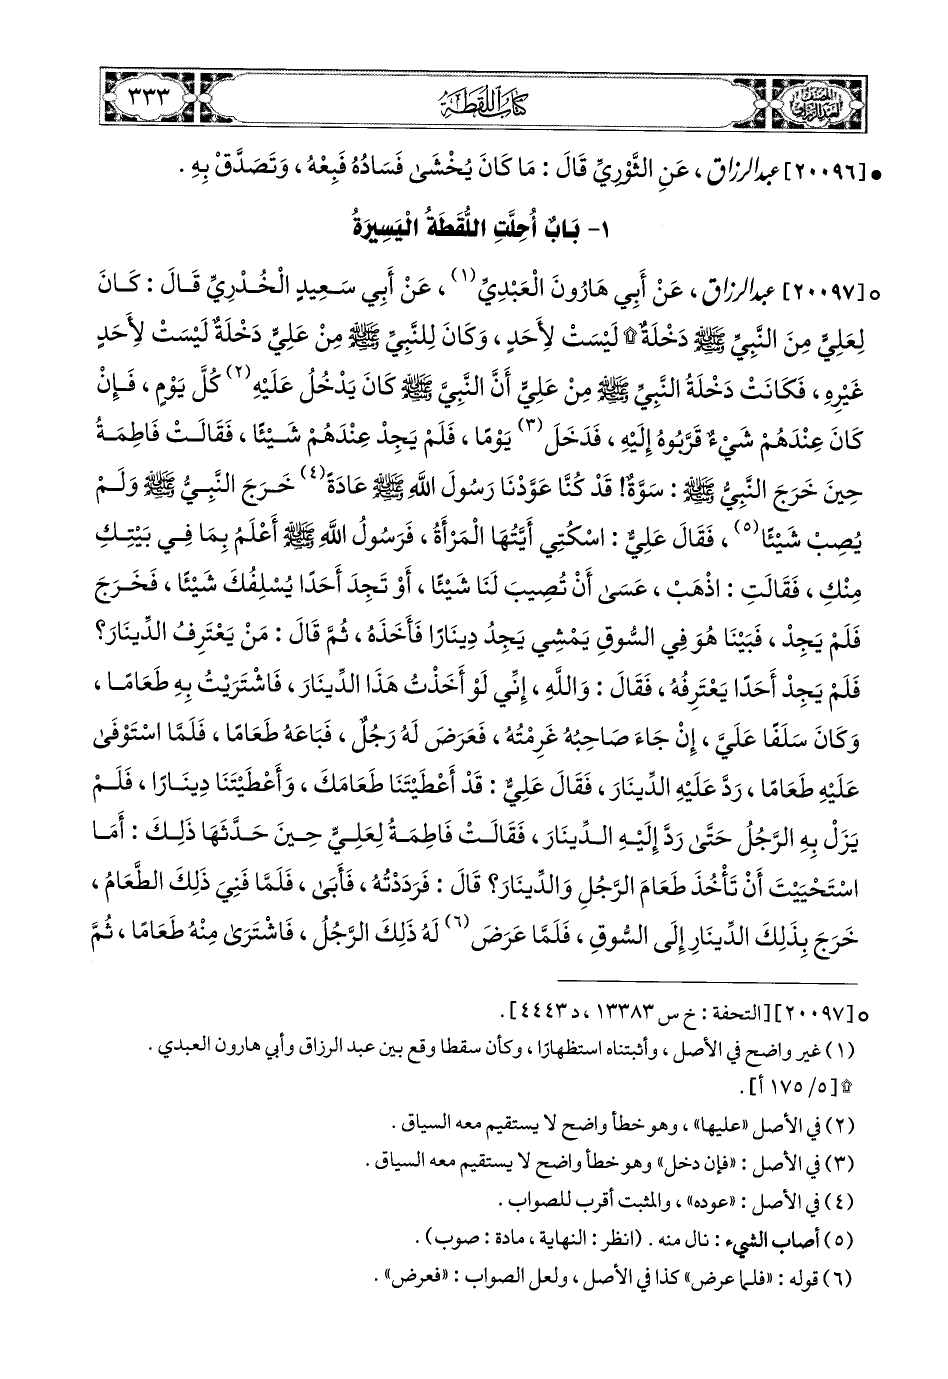 المصنف لعبد الرزاق
كتاب اللقطة
٣٣٣
• [٢٠٠٩٦] عبد الرزاق ، عَنِ الثَّوْرِيِّ قَالَ : مَا كَانَ يُخْشَىٰ فَسَادُهُ فَبِعْهُ ، وَتَصَدَّقْ بِهِ .
١- بَابٌ أُحِلَّتِ اللُّقَطَةُ الْيَسِيرَةُ
○ [٢٠٠٩٧] عبد الرزاق ، عَنْ أَبِي هَارُونَ الْعَبْدِيِّ (١) ، عَنْ أَبِي سَعِيدٍ الْخُدْرِيِّ قَالَ : كَانَ
لِعَلِيٍّ مِنَ النَّبِيِّ ﷺ دَخْلَةٌ ۩ لَيْسَتْ لِأَحَدٍ ، وَكَانَ لِلنَّبِيِّ ﷺ مِنْ عَلِيٍّ دَخْلَةٌ لَيْسَتْ لِأَحَدٍ
غَيْرِهِ ، فَكَانَتْ دَخْلَةُ النَّبِيِّ ﷺ مِنْ عَلِيٍّ أَنَّ النَّبِيَّ ﷺ كَانَ يَدْخُلُ عَلَيْهِ (٢) كُلَّ يَوْمٍ ، فَإِنْ
كَانَ عِنْدَهُمْ شَيْءٌ قَرَّبُوهُ إِلَيْهِ ، فَدَخَلَ (٣) يَوْمًا ، فَلَمْ يَجِدْ عِنْدَهُمْ شَيْئًا ، فَقَالَتْ فَاطِمَةُ
حِينَ خَرَجَ النَّبِيُّ ﷺ : سَوَّةٌ! قَدْ كُنَّا عَوَّدْنَا رَسُولَ اللَّهِ ﷺ عَادَةً (٤) خَرَجَ النَّبِيُّ ﷺ وَلَمْ
يُصِبْ شَيْئًا (٥) ، فَقَالَ عَلِيٌّ : اسْكُتِي أَيَّتُهَا الْمَرْأَةُ ، فَرَسُولُ اللَّهِ ﷺ أَعْلَمُ بِمَا فِي بَيْتِكِ
مِنْكِ ، فَقَالَتِ : اذْهَبْ ، عَسَىٰ أَنْ تُصِيبَ لَنَا شَيْئًا ، أَوْ تَجِدَ أَحَدًا يُسْلِفُكَ شَيْئًا ، فَخَرَجَ
فَلَمْ يَجِدْ ، فَبَيْنَا هُوَ فِي السُّوقِ يَمْشِي يَجِدُ دِينَارًا فَأَخَذَهُ ، ثُمَّ قَالَ : مَنْ يَعْتَرِفُ الدِّينَارَ؟
فَلَمْ يَجِدْ أَحَدًا يَعْتَرِفُهُ ، فَقَالَ : وَاللَّهِ ، إِنِّي لَوْ أَخَذْتُ هَذَا الدِّينَارَ ، فَاشْتَرَيْتُ بِهِ طَعَامًا ،
وَكَانَ سَلَفًا عَلَيَّ ، إِنْ جَاءَ صَاحِبُهُ غَرِمْتُهُ ، فَعَرَضَ لَهُ رَجُلٌ ، فَبَاعَهُ طَعَامًا ، فَلَمَّا اسْتَوْفَىٰ
عَلَيْهِ طَعَامًا ، رَدَّ عَلَيْهِ الدِّينَارَ ، فَقَالَ عَلِيٌّ : قَدْ أَعْطَيْتَنَا طَعَامَكَ ، وَأَعْطَيْتَنَا دِينَارًا ، فَلَمْ
يَزَلْ بِهِ الرَّجُلُ حَتَّىٰ رَدَّ إِلَيْهِ الدِّينَارَ ، فَقَالَتْ فَاطِمَةُ لِعَلِيٍّ حِينَ حَدَّثَهَا ذَلِكَ : أَمَا
اسْتَحْيَيْتَ أَنْ تَأْخُذَ طَعَامَ الرَّجُلِ وَالدِّينَارَ؟ قَالَ : فَرَدَدْتُهُ ، فَأَبَىٰ ، فَلَمَّا فَنِيَ ذَلِكَ الطَّعَامُ ،
خَرَجَ بِذَلِكَ الدِّينَارِ إِلَى السُّوقِ ، فَلَمَّا عَرَضَ (٦) لَهُ ذَلِكَ الرَّجُلُ ، فَاشْتَرَىٰ مِنْهُ طَعَامًا ، ثُمَّ
○ [٢٠٠٩٧] [التحفة : خ س ١٣٣٨٣ ، د ٤٤٤٣] .
(١) غير واضح في الأصل ، وأثبتناه استظهارًا ، وكأن سقطا وقع بين عبد الرزاق وأبي هارون العبدي .
۩ [٥/ ١٧٥ أ] .
(٢) في الأصل «عليها» ، وهو خطأ واضح لا يستقيم معه السياق .
(٣) في الأصل : «فإن دخل» وهو خطأ واضح لا يستقيم معه السياق .
(٤) في الأصل : «عوده» ، والمثبت أقرب للصواب .
(٥) أصاب الشيء : نال منه . (انظر : النهاية ، مادة : صوب) .
(٦) قوله : «فلما عرض» كذا في الأصل ، ولعل الصواب : «فعرض» .